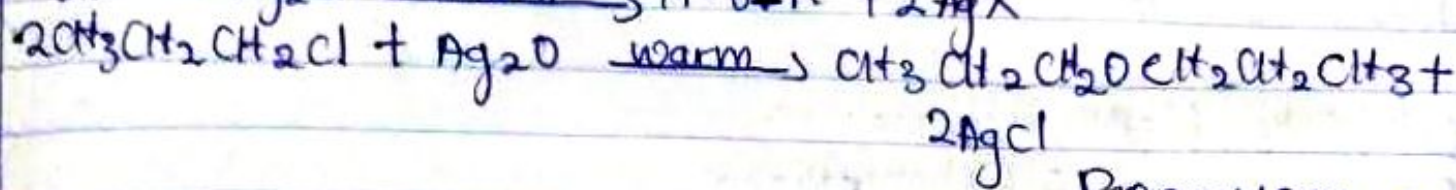 → R-O-R + 2AgX
2CH3CH2CH2Cl + Ag2O warm→ CH3CH2CH2OCH2CH2CH3 +
2AgCl